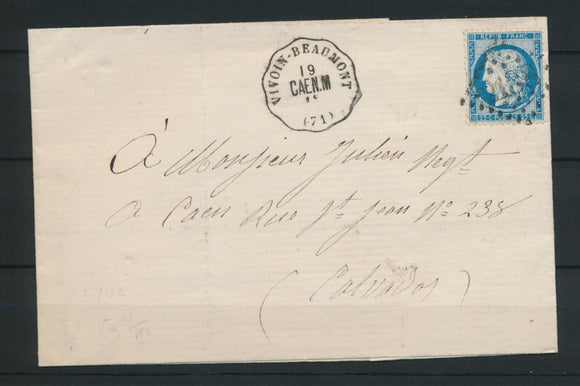 VIVOIN-BEAUMONT
19
CAEN.M
1°
(71)
REPUB. FRANC.
25 25
À Monsieur Julien Negt.
a Caen Rue St. Jean No 238
(Calvados)